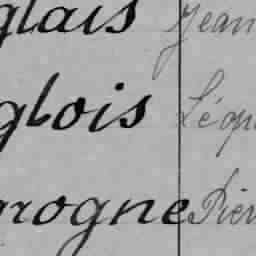 glais Jean
glois Léop
arogne Pier